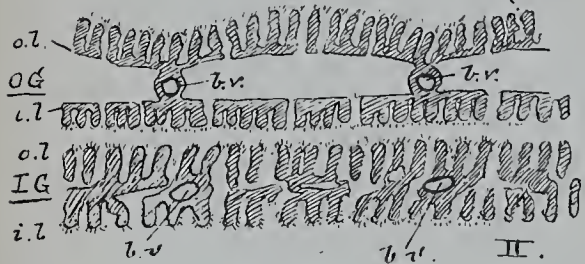 o.l.
b.v. b.v.
OG
i.l
o.l
IG
i.l
b.v b.v. II.